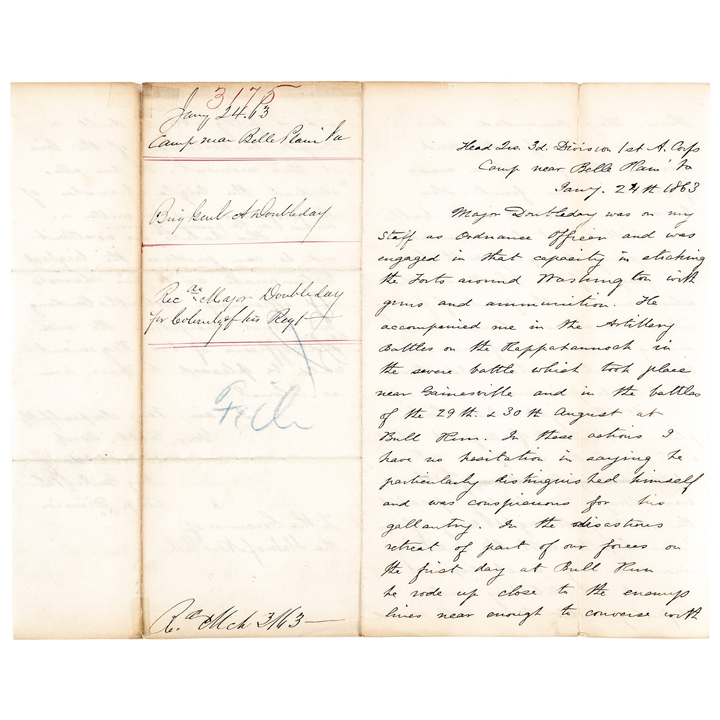 3175
Jany 24.63
Camp near Belle Plain Va
Brig Genl A Doubleday
Rec Major Doubleday
for Colonelcy of his Regt
File
Mch 3/63
Head Qrs. 3d. Division 1st A. Corps
Camp near Belle Plain Va
Jany. 24th 1863
Major Doubleday was on my
Staff as Ordnance Officer and was
engaged in that capacity in stocking
the Forts around Washington with
guns and ammunition. He
accompanied me in the Artillery
Battles on the Rappahannock in
the severe battle which took place
near Gainesville and in the battles
of the 29th. & 30th August at
Bull Run. In these actions I
have no hesitation in saying he
particularly distinguished himself
and was conspicuous for his
gallantry. In the disastrous
retreat of part of our forces on
the first day at Bull Run
he rode up close to the enemys
lines near enough to converse with